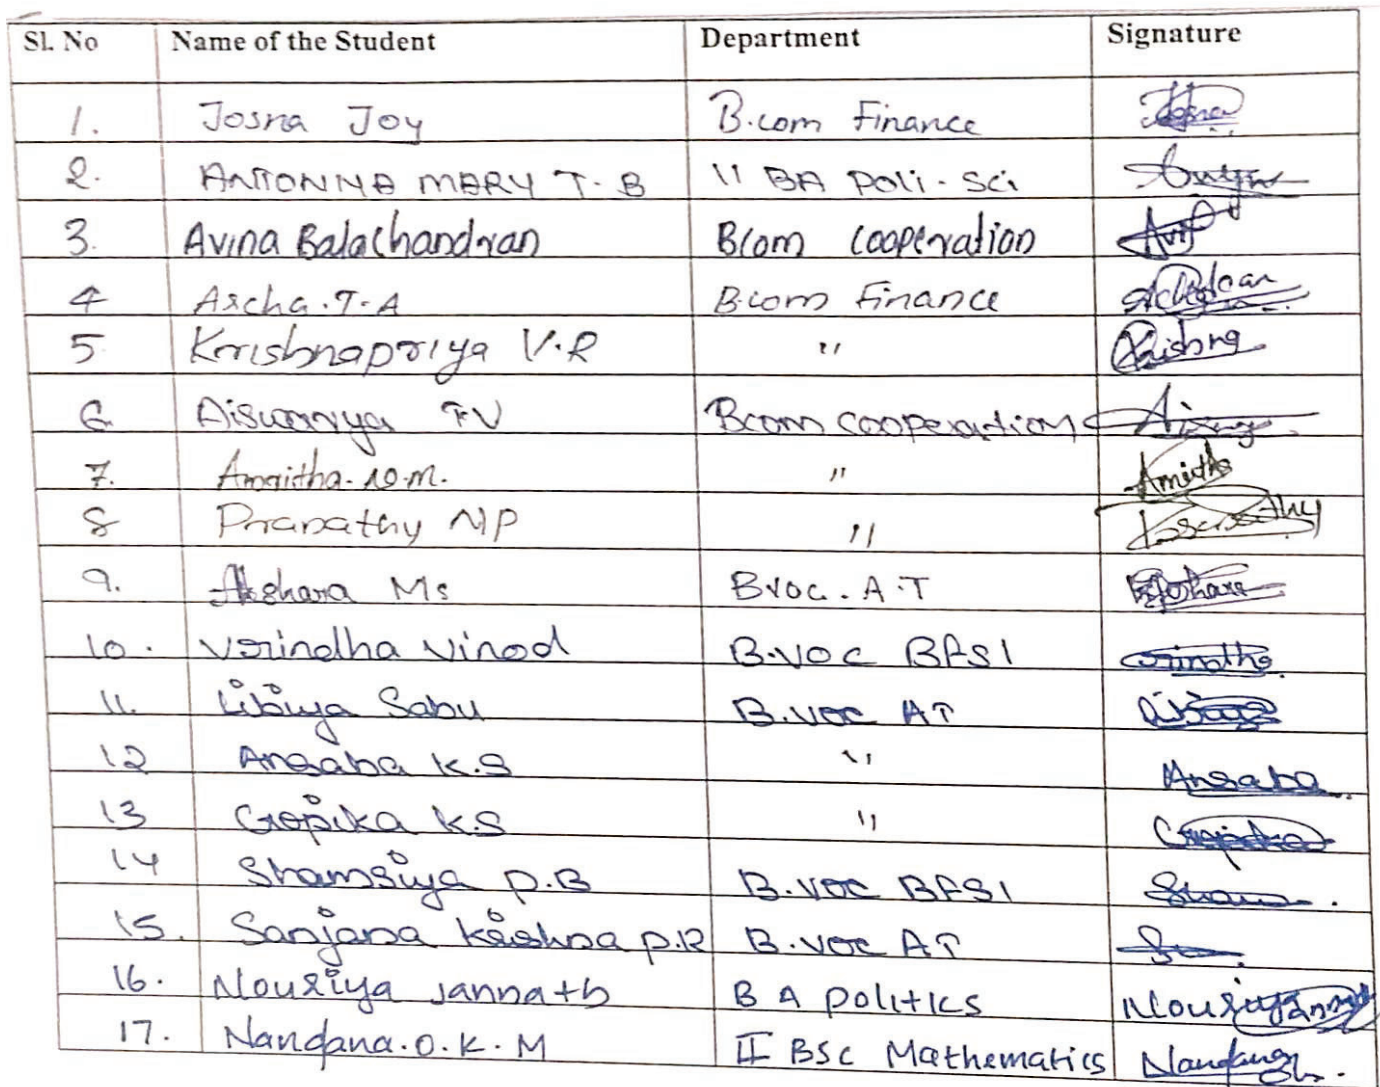 Sl. No Name of the Student Department Signature
1. Josna Joy B.com Finance
2. ANTONNA MARY T. B II BA Poli. Sci
3. Avina Balachandran Bcom cooperation
4 Ascha. T. A B.com Finance
5 Krrishnapriya V. R " Krishna
6 Aiswarya FV Bcom cooperation
7. Amritha. N. M. " Amritha
8 Pranathy NP "
9. Akshara Ms Bvoc. A. T Akshara
10. Vrindha Vinod B.VOC BFSI Vrindha
11. Libiya Sabu B.VOC AT
12 Ansaba K.S " Ansaba
13 Gopika K.S " Gopika
14 Shamsiya P.B B.VOC BFSI
15. Sanjana Krishna P.R B.VOC AT
16. Nousiya Jannath B A Politics
17. Nandana. O. K. M II BSc Mathematics